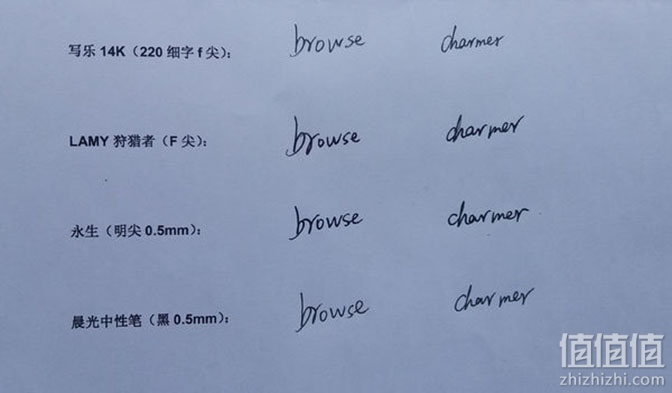 写乐 14K（220 细字 f 尖）： browse charmer
LAMY 狩猎者（F 尖）： browse charmer
永生（明尖 0.5mm）： browse charmer
晨光中性笔（黑 0.5mm）： browse charmer
值值值
zhizhizhi.com